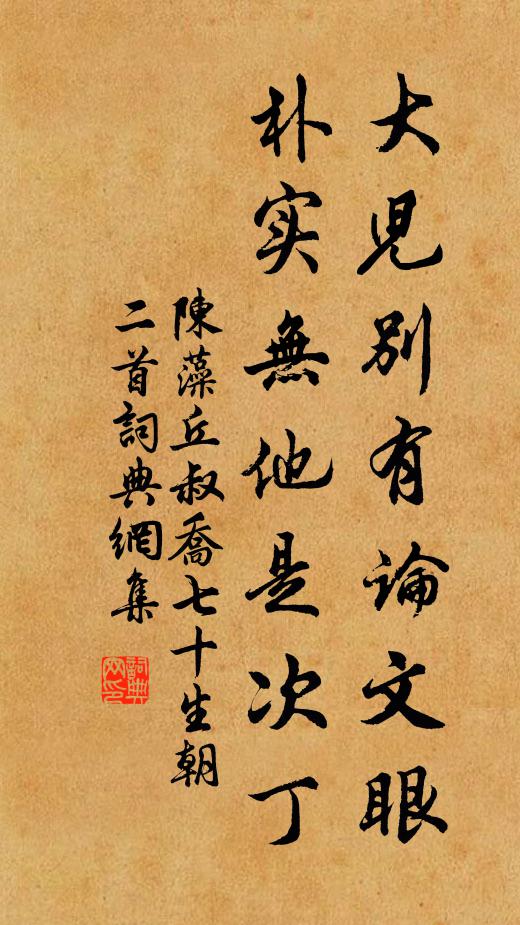 大児別有論文眼
朴实無他是次丁
陳藻丘叔喬七十生朝
二首詞典網集
詞典网印